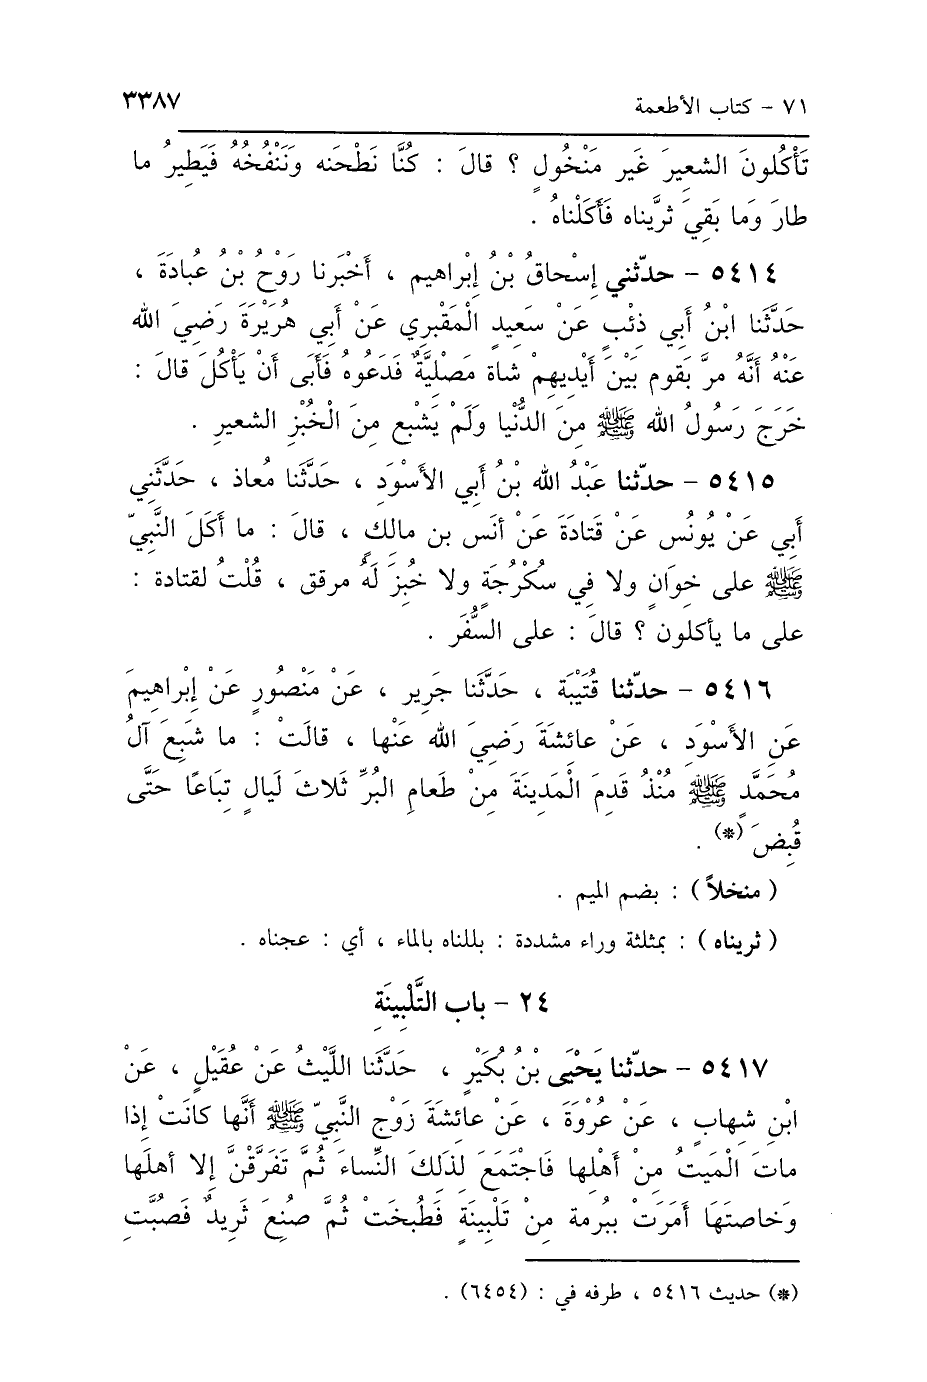 ٧١ - كتاب الأطعمة ٣٣٨٧
تَأْكُلونَ الشعيرَ غَير مَنْخُولٍ ؟ قالَ : كُنَّا نَطْحَنه وَنَنْفُخُهُ فَيَطِيرُ ما
طارَ وَما بَقِيَ ثرَّيناه فَأَكَلْناهُ .
٥٤١٤ - حدّثني إِسْحاقُ بْنُ إِبْراهيم ، أَخْبَرنا رَوْحُ بنُ عُبادَةَ ،
حَدَّثَنا ابْنُ أَبي ذِئْبٍ عَنْ سَعِيدٍ الْمَقْبرِي عَنْ أَبي هُرَيْرَةَ رَضِيَ الله
عَنْهُ أَنَّهُ مرَّ بَقوم بَيْنَ أَيْدِيهِمْ شاة مَصْلِيَّةٌ فَدَعُوهُ فَأَبَى أَنْ يَأْكُلَ قالَ :
خَرَجَ رَسُولُ الله ﷺ مِنَ الدُّنْيا وَلَمْ يَشْبع مِنَ الْخُبْزِ الشعيرِ .
٥٤١٥ - حدّثنا عَبْدُ الله بْنُ أَبي الأَسْوَدِ ، حَدَّثَنا مُعاذ ، حَدَّثَنِي
أَبي عَنْ يُونُس عَنْ قَتادَةَ عَنْ أَنَس بن مالكٍ ، قالَ : ما أَكَلَ النَّبِيّ
ﷺ على خِوَانٍ ولا فِي سكْرُجَةٍ ولا خُبِزَ لَهُ مرقق ، قُلْتُ لقتادة :
على ما يأكلون ؟ قالَ : على السُّفَر .
٥٤١٦ - حدّثنا قُتَيْبَة ، حَدَّثَنا جَرِير ، عَنْ مَنْصُورٍ عَنْ إِبْراهِيمَ
عَنِ الأَسْوَدِ ، عَنْ عائِشَةَ رَضِيَ الله عَنْها ، قالَتْ : ما شَبِعَ آلُ
مُحَمَّدٍ ﷺ مُنْذُ قَدِمَ الْمَدِينَةَ مِنْ طَعامِ البُرِّ ثَلاثَ لَيالٍ تِبَاعًا حَتَّى
قُبِضَ (*) .
( منخلاً ) : بضم الميم .
( ثريناه ) : بمثلثة وراء مشددة : بللناه بالماء ، أي : عجناه .
٢٤ - باب التَّلْبِينَةِ
٥٤١٧ - حدّثنا يَحْيَى بْنُ بُكَيْرٍ ، حَدَّثَنا اللَّيْثُ عَنْ عُقَيْلٍ ، عَنْ
ابْنِ شِهابٍ ، عَنْ عُرْوَةَ ، عَنْ عائِشَةَ زَوْجِ النَّبِيّ ﷺ أَنَّها كانَتْ إِذا
ماتَ الْمَيتُ مِنْ أَهْلِها فَاجْتَمَعَ لِذَلِكَ النِّساءَ ثُمَّ تَفَرَّقْنَّ إلا أهلَها
وَخاصتَهَا أَمَرَتْ ببُرمة مِنْ تَلْبِينَةٍ فَطُبِخَتْ ثُمَّ صُنِعَ ثَرِيدٌ فَصُبَّت
(*) حديث ٥٤١٦ ، طرفه في : (٦٤٥٤) .